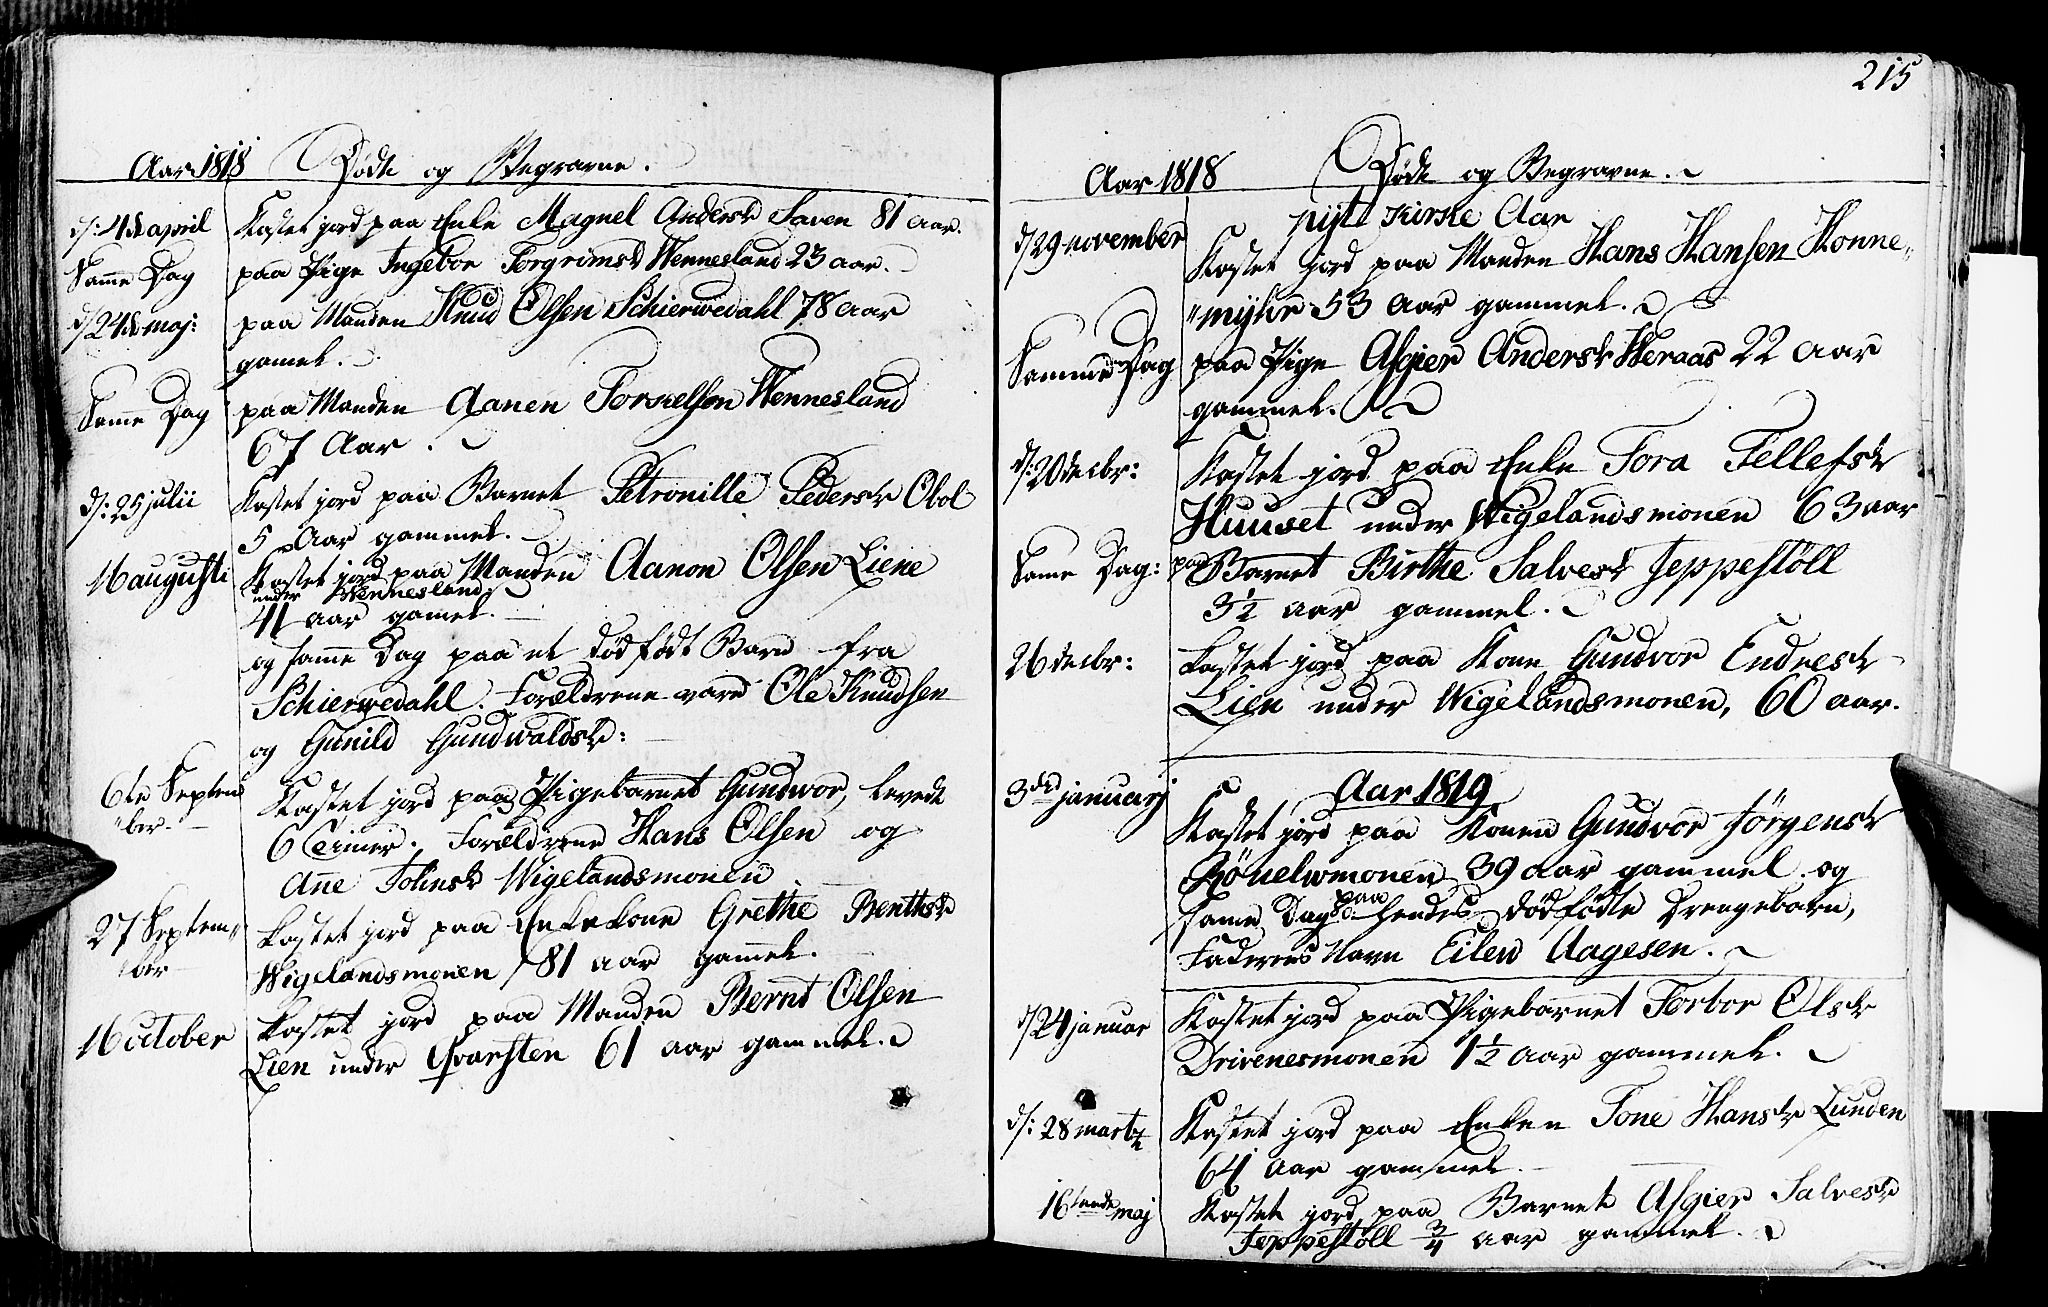 Aar 1818 Døde og Begravne.
d: 4de april Kastet jord paa Enke Magnel Andersd Saven 81 Aar.
Samme Dag paa Pige Ingebor Torgrimsd Wennesland 23 aar.
d/24de maj: paa Manden Knud Olsen Schierwedahl 78 aar
gamel.
Same Dag paa Manden Aanen Torkelsen Wennesland
67 Aar.
d: 25 julii Kastet jord paa Barnet Petronille Pedersd Obol
5 Aar gammel.
16 augusti Kastet jord paa Manden Aanon Olsen Liene
under Wennesland
41 aar gamel.
og samme Dag paa et dødfødt Barn fra
Schierwedahl. Forældrene vare Ole Knudsen
og Gunild Gundwaldsd:
6te Septem Kastet jord paa Pigebarnet Gundwor, levede
"ber. 6 Forældrene Hans Olsen og
Ane Johnsd Wigelandsmonen
27 Septem" Kastet jord paa Enkekone Grethe Bentsd
ber Wigelandsmonen 81 aar gamel.
16 october Kastet jord paa Manden Bernt Olsen
Lien under Qvarsten 61 aar gammel.
215
Aar 1818 Døde og Begravne.
nyt Kirke Aar
d/29 november Kastet jord paa Manden Hans Hansen Honne"
"myhr 53 Aar gammel.
Samme Dag paa Pige Asgier Andersd Heraas 22 Aar
gammel.
d: 20 decbr: Kastet jord paa Enke Tora Tellefsd
Huuset under Wigelandsmonen 63 aar
Same Dag: paa Barnet Birthe Salvesd Jeppestöll
3½ aar gammel.
26 decbr: Kastet jord paa Kone Gundvor Endresd
Lien under Wigelandsmonen, 60 aar.
Aar 1819
3die januarj Kastet jord paa Konen Gundvor Jörgensd
39 aar gammel og
same Dag paa hendes dødfødte Drengebarn,
Faderens Navn Eilew Aagesen.
d/24 januar Kastet jord paa Pigebarnet Torbor Olsd
Drivenesmonen 1½ aar gammel.
d: 28 martz Kastet jord paa Enken Tone Hansd Lunden
64 aar gammel.
16tende maj Kastet jord paa Barnet Asgier Salvesd
Jeppestöll ¾ aar gammel.